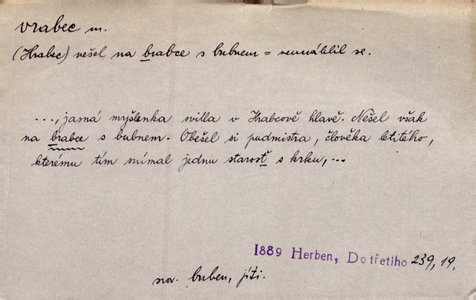 vrabec m.
(Hrabec) nešel na brabce s bubnem = neunáhlil se.
..., jasná myšlenka svilla v Hrabcově hlavě. Nešel však
na brabce s bubnem. Obešel si pudmistra, člověka letitého,
kterému tím snímal jednu starosť s krku, ...
1889 Herben, Do třetího 239, 19.
srv. buben, jíti.